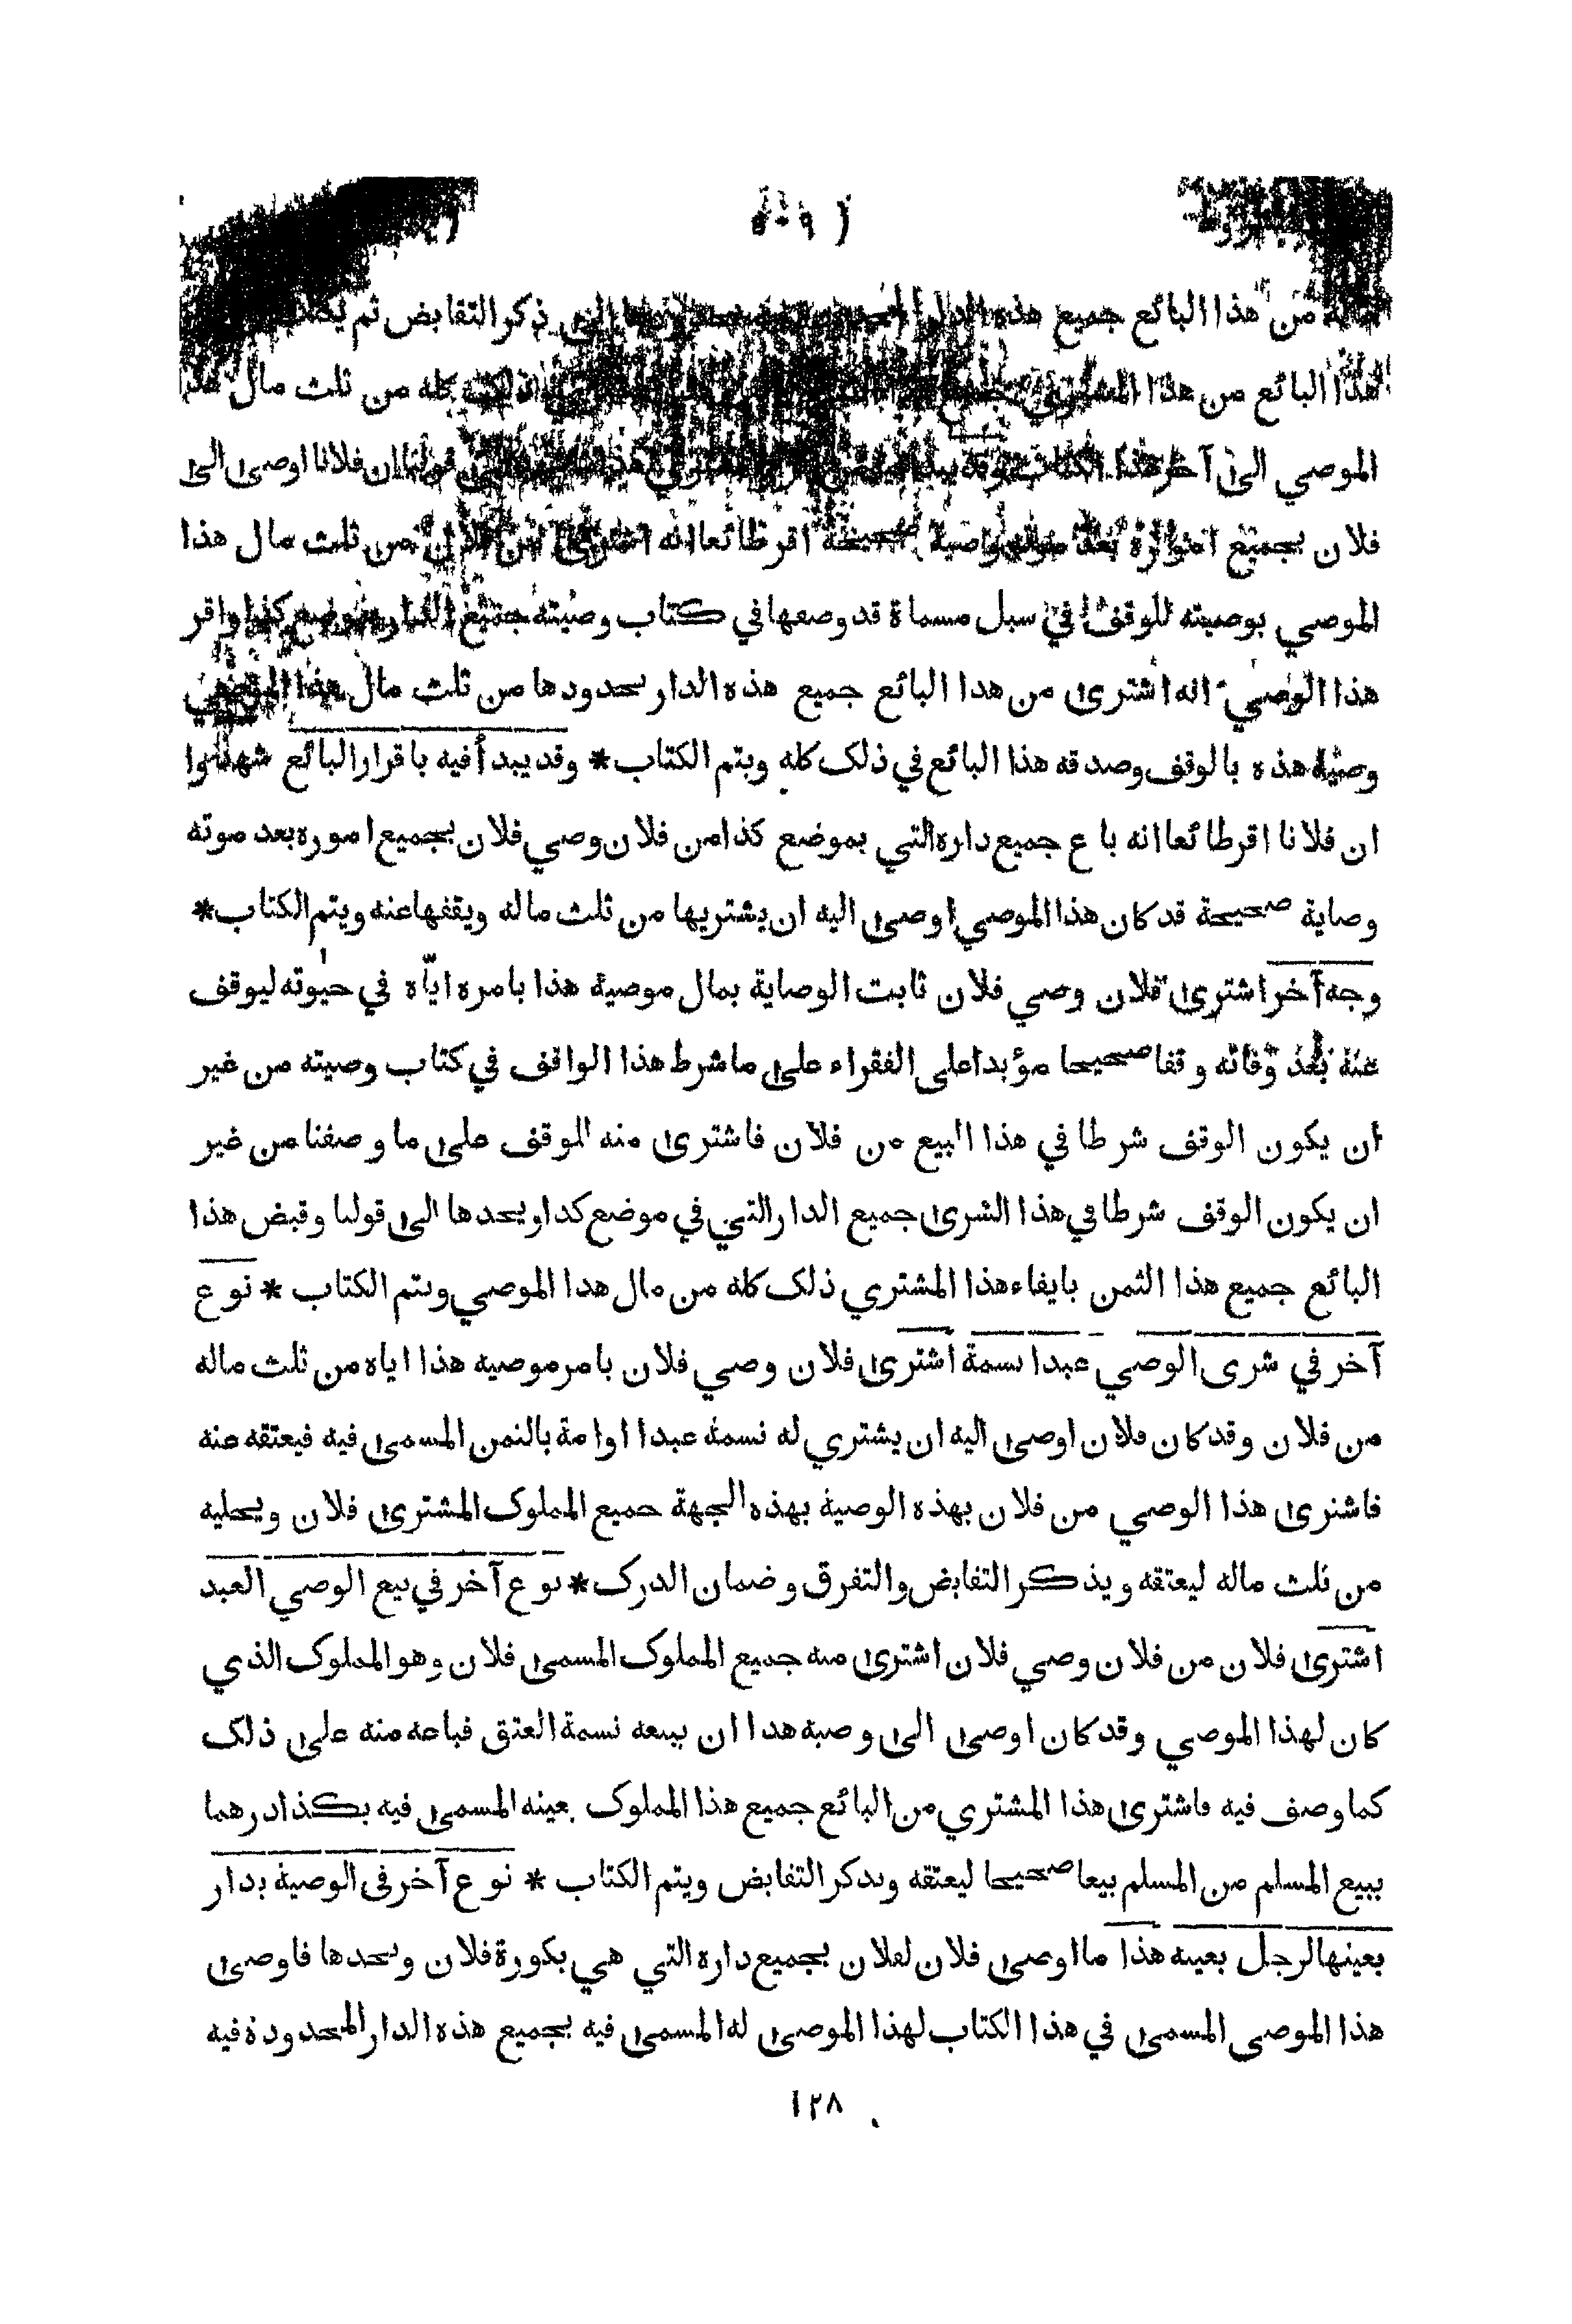 ( ٥٠٩ )
من هذا البائع جميع هذه الدار ذكر التقابض ثم
هذا البائع من هذا المشتري جميع ذلك كله من ثلث مال هذا
الموصي الى آخر هذا الكتاب ان فلانا اوصى الى
فلان بجميع اموره بعد موته وصية صحيحة اقر طائعا انه اشترى من فلان من ثلث مال هذا
الموصي بوصيته للوقف في سبل مسماة قد وصعها في كتاب وصيته جميع الدار بموضع كذا واقر
هذا الوصي انه اشترى من هدا البائع جميع هذه الدار بحدودها من ثلث مال هذا الموصي
وصية هذه بالوقف وصدقه هذا البائع في ذلك كله ويتم الكتاب * وقد يبدأ فيه باقرار البائع شهدوا
ان فلانا اقر طائعا انه باع جميع داره التي بموضع كذا من فلان وصي فلان بجميع اموره بعد موته
وصاية صحيحة قد كان هذا الموصي اوصى اليه ان يشتريها من ثلث ماله ويقفها عنه ويتم الكتاب *
وجه آخر اشترى فلان وصي فلان ثابت الوصاية بمال موصية هذا بامره ايّاه في حيوته ليوقف
عنه بعد وفاته وقفا صحيحا مؤبدا على الفقراء على ما شرط هذا الواقف في كتاب وصيته من غير
ان يكون الوقف شرطا في هذا البيع من فلان فاشترى منه الموقف على ما وصفنا من غير
ان يكون الوقف شرطا في هذا الشرى جميع الدار التي في موضع كدا ويحدها الى قولنا وقبض هذا
البائع جميع هذا الثمن بايفاء هذا المشتري ذلك كله من مال هدا الموصي ويتم الكتاب * نوع
آخر في شرى الوصي عبدا نسمة اشترى فلان وصي فلان بامر موصيه هذا اياه من ثلث ماله
من فلان وقد كان فلان اوصى اليه ان يشتري له نسمة عبدا او امة بالثمن المسمى فيه فيعتقه عنه
فاشترى هذا الوصي من فلان بهذه الوصية بهذه الجهة جميع المملوك المشترى فلان ويحليه
من ثلث ماله ليعتقه ويذكر التقابض والتفرق وضمان الدرك * نوع آخر في بيع الوصي العبد
اشترى فلان من فلان وصي فلان اشترى منه جميع المملوك المسمى فلان وهو المملوك الذي
كان لهذا الموصي وقد كان اوصى الى وصيه هدا ان يبيعه نسمة العتق فباعه منه على ذلك
كما وصف فيه فاشترى هذا المشتري من البائع جميع هذا المملوك بعينه المسمى فيه بكذا درهما
ببيع المسلم من المسلم بيعا صحيحا ليعتقه ويدكر التقابض ويتم الكتاب * نوع آخر فى الوصية بدار
بعينها لرجل بعينه هذا ما اوصى فلان لفلان بجميع داره التي هي بكورة فلان ويحدها فاوصى
هذا الموصى المسمى في هذا الكتاب لهذا الموصى له المسمى فيه بجميع هذه الدار المحدودة فيه
١٢٨